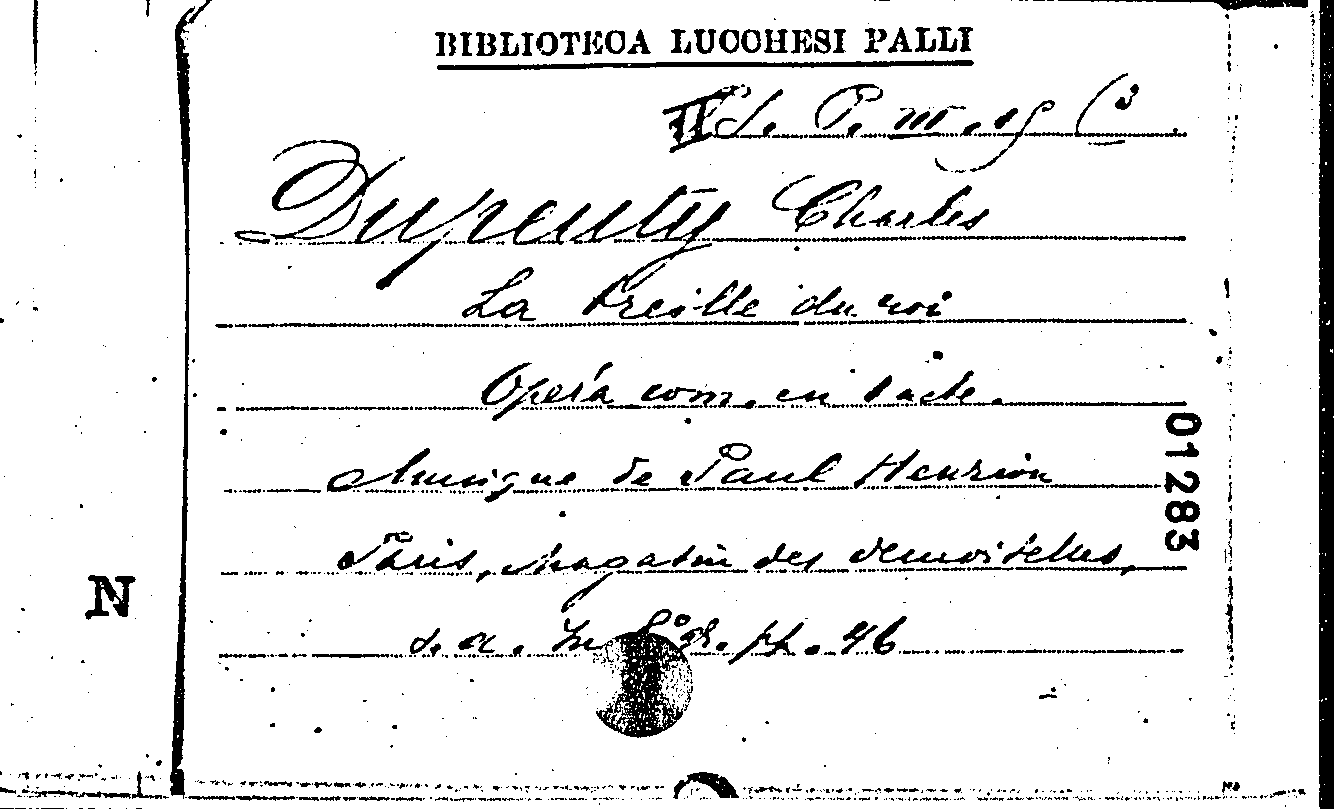 BIBLIOTECA LUCCHESI PALLI
L. P. III. 19 (3
Dupeuty Charles
La treille du roi
Opéra com. en 1 acte.
Musique de Paul Henrion
Paris, Magasin des demoiselles,
s. a. In 8° gr. pp. 46
01283
N